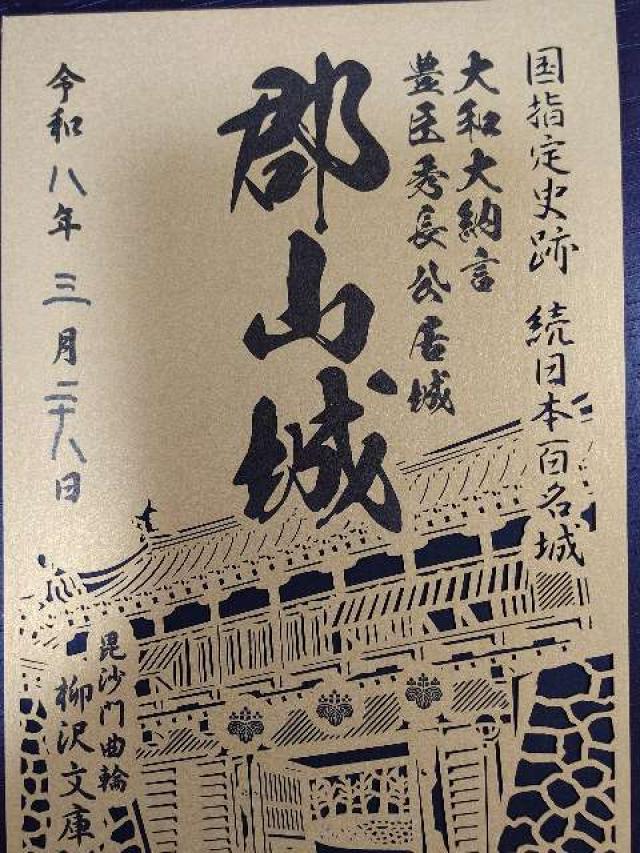 国指定史跡 続日本百名城
大和大納言
豊臣秀長公居城
郡山城
令和八年三月二十八日
毘沙門曲輪
柳沢文庫